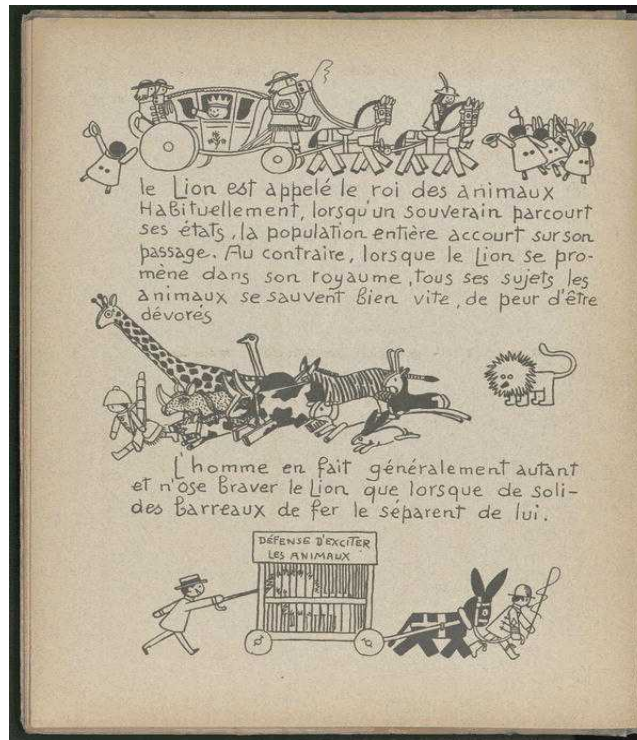 le Lion est appelé le roi des animaux
Habituellement, lorsqu'un souverain parcourt
ses états, la population entière accourt sur son
passage. Au contraire, lorsque le Lion se pro-
mène dans son royaume, tous ses sujets les
animaux se sauvent bien vite, de peur d'être
dévorés
L'homme en fait généralement autant
et n'ose braver le Lion que lorsque de soli-
des barreaux de fer le séparent de lui.
DÉFENSE D'EXCITER
LES ANIMAUX